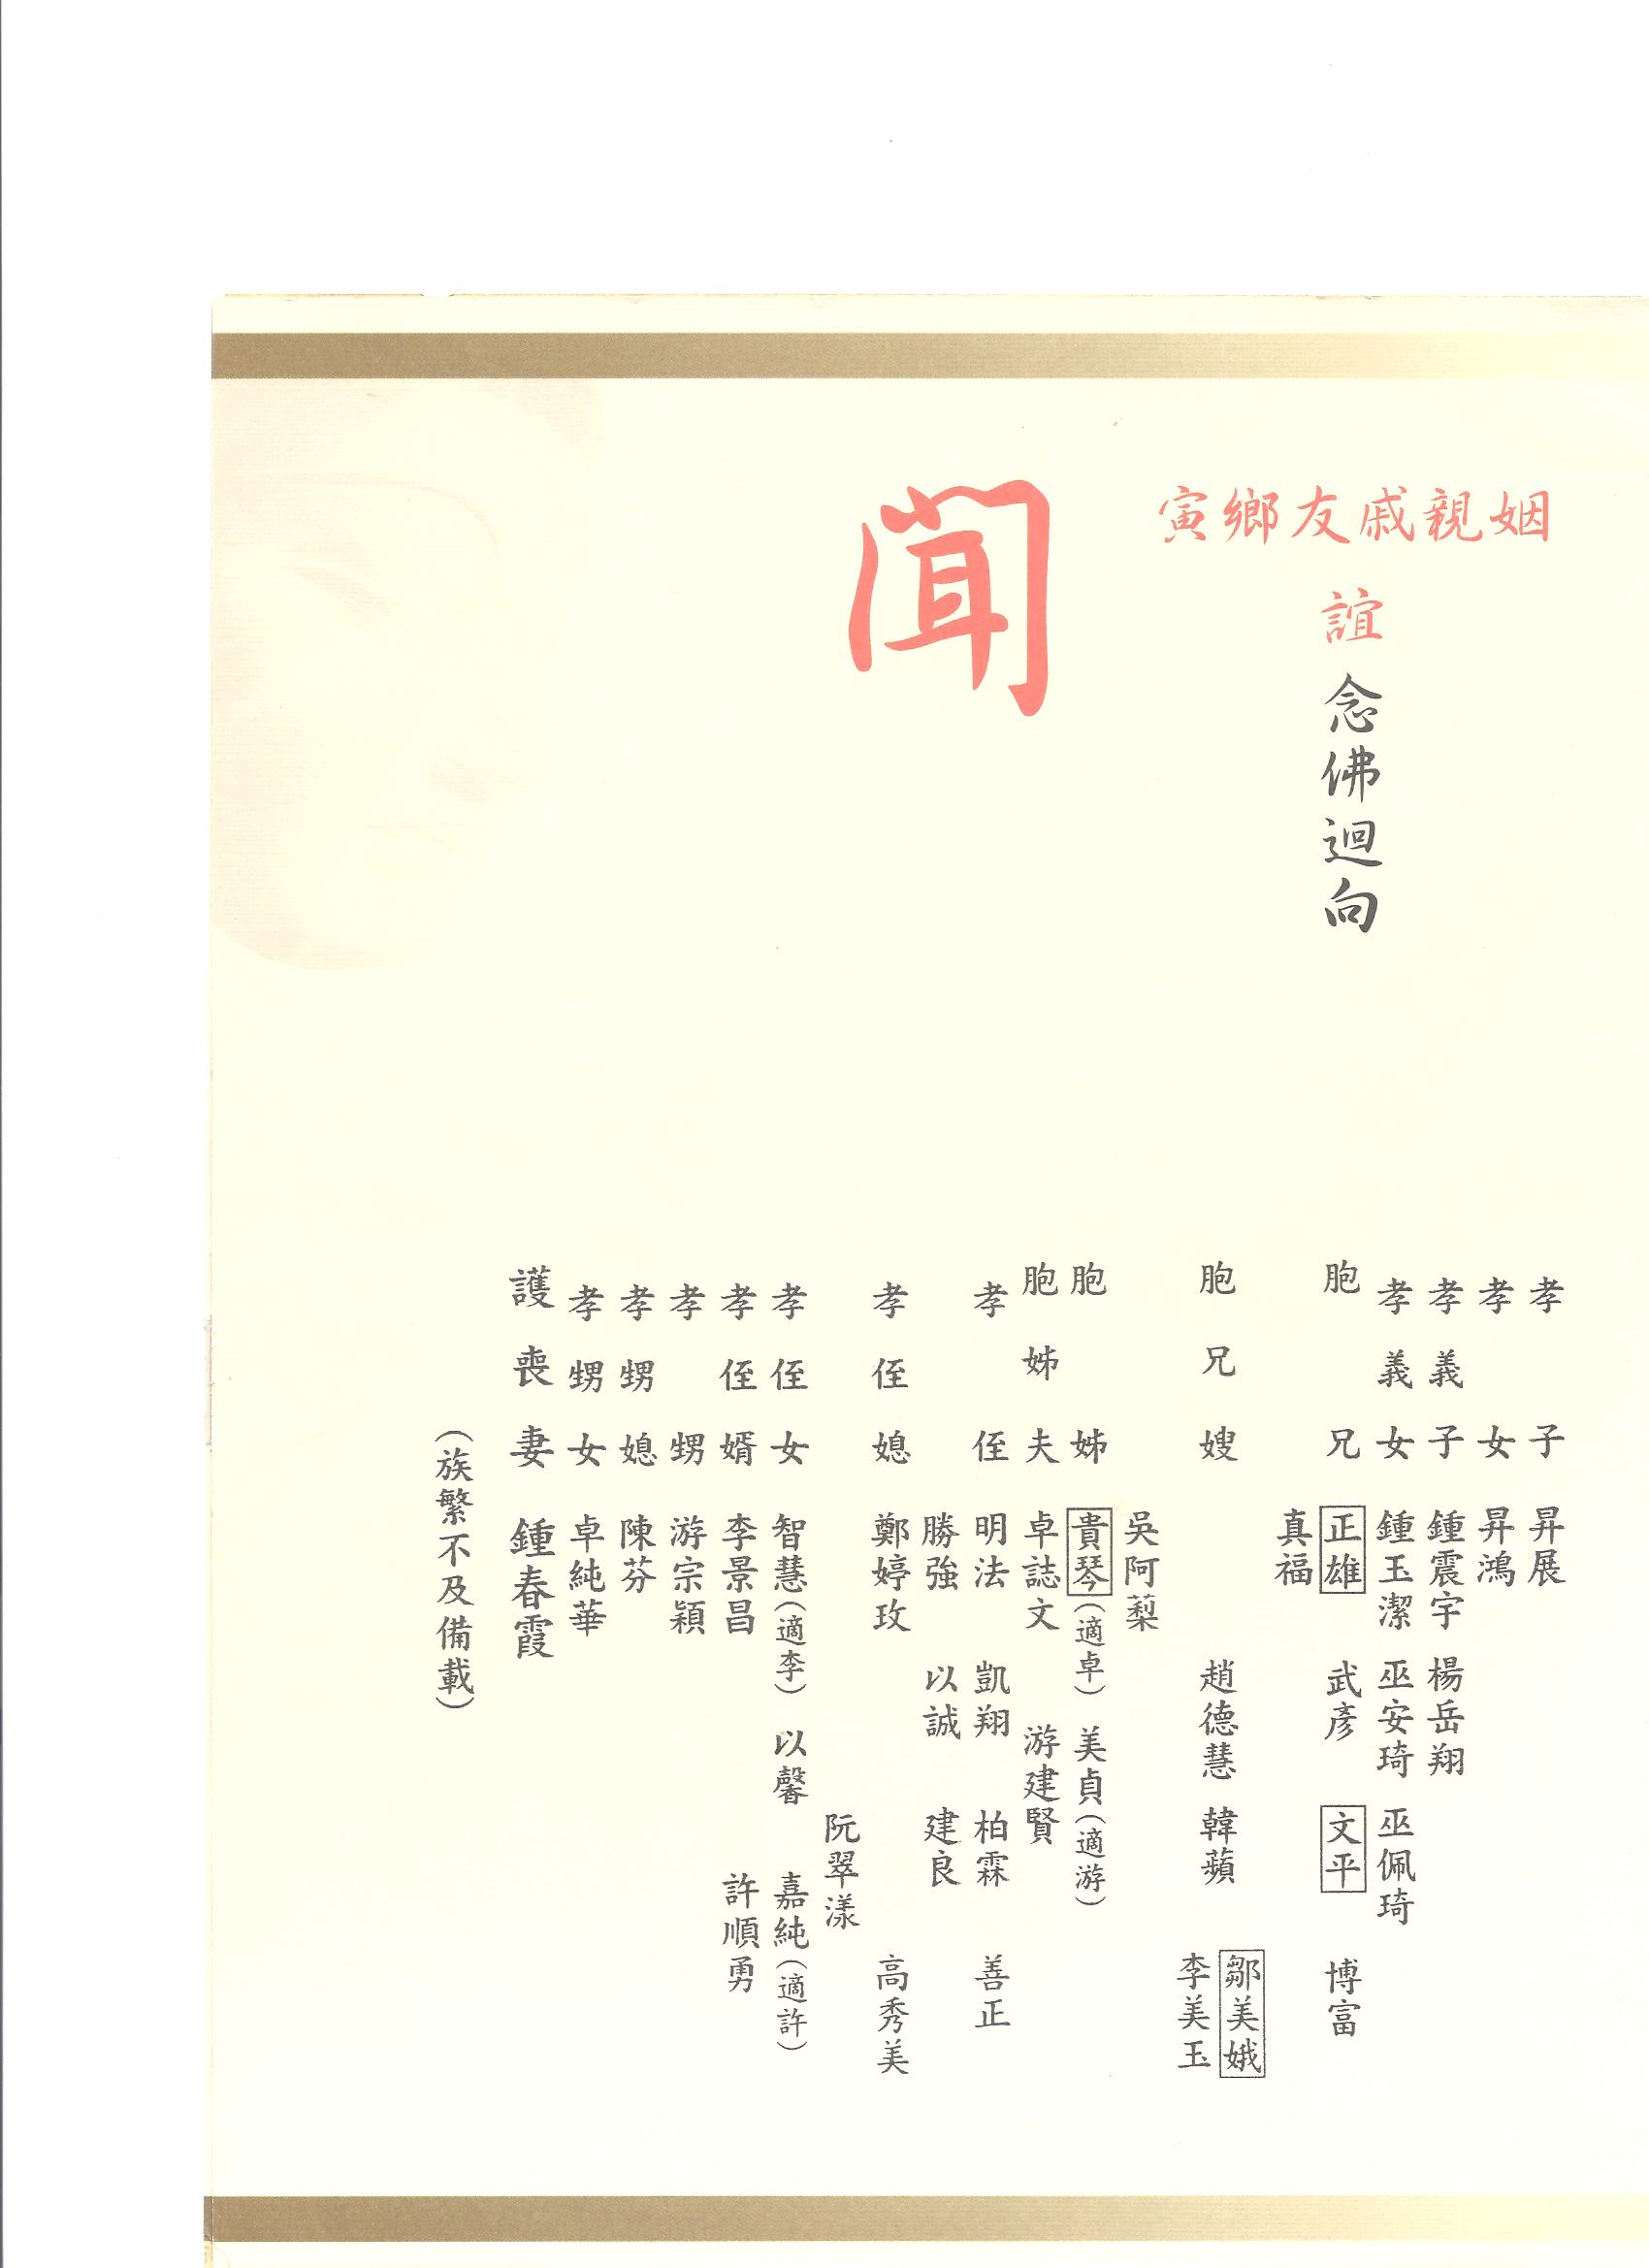 姻親戚友鄉寅
誼念佛迴向
聞
孝子 昇展
孝女 昇鴻
孝義子 鍾震宇 楊岳翔
孝義女 鍾玉潔 巫安琦 巫佩琦
胞兄 正雄 武彥 文平 博富
真福
鄒美娥
胞兄嫂 趙德慧 韓蘋
李美玉
吳阿蔾
胞姊 貴琴(適卓) 美貞(適游)
胞姊夫 卓誌文 游建賢
孝侄 明法 凱翔 柏霖 善正
勝強 以誠 建良
孝侄媳 鄭婷玫 高秀美
阮翠漾
孝侄女 智慧(適李) 以馨 嘉純(適許)
孝侄婿 李景昌 許順勇
孝甥 游宗穎
孝甥媳 陳芬
孝甥女 卓純華
護喪妻 鍾春霞
(族繁不及備載)